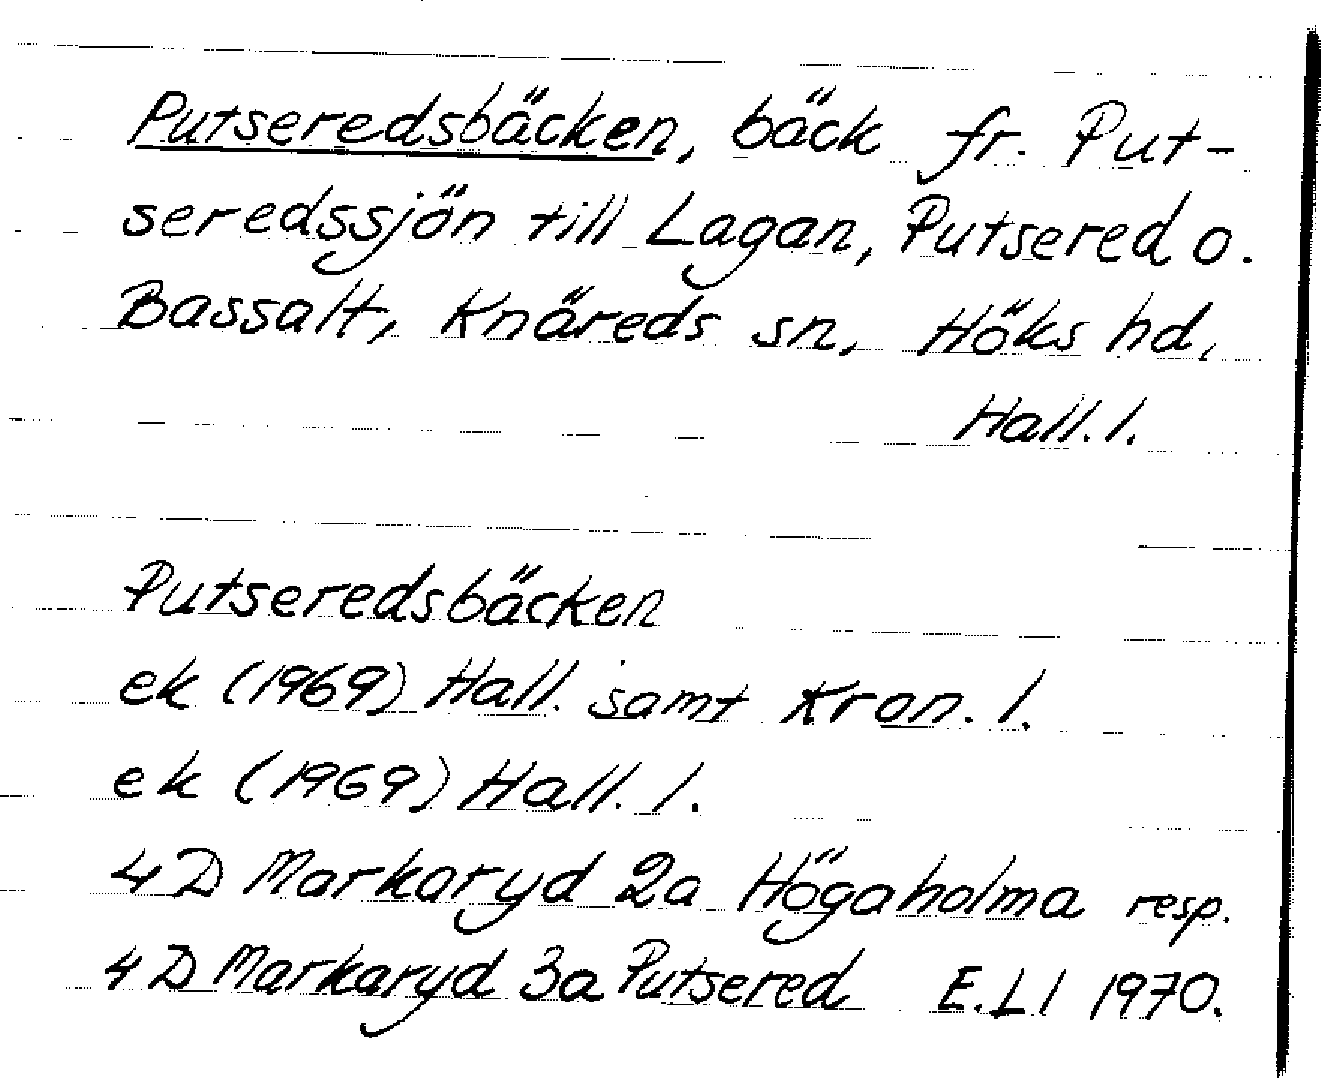 Putseredsbäcken, bäck fr. Put-
seredssjön till Lagan, Putsered o.
Bassalt, Knäreds sn, Höks hd,
Hall. l.
Putseredsbäcken
ek (1969) Hall. samt Kron. l.
ek (1969) Hall. l.
4D Markaryd 2a Högaholma resp.
4D Markaryd 3a Putsered E.Ll 1970.